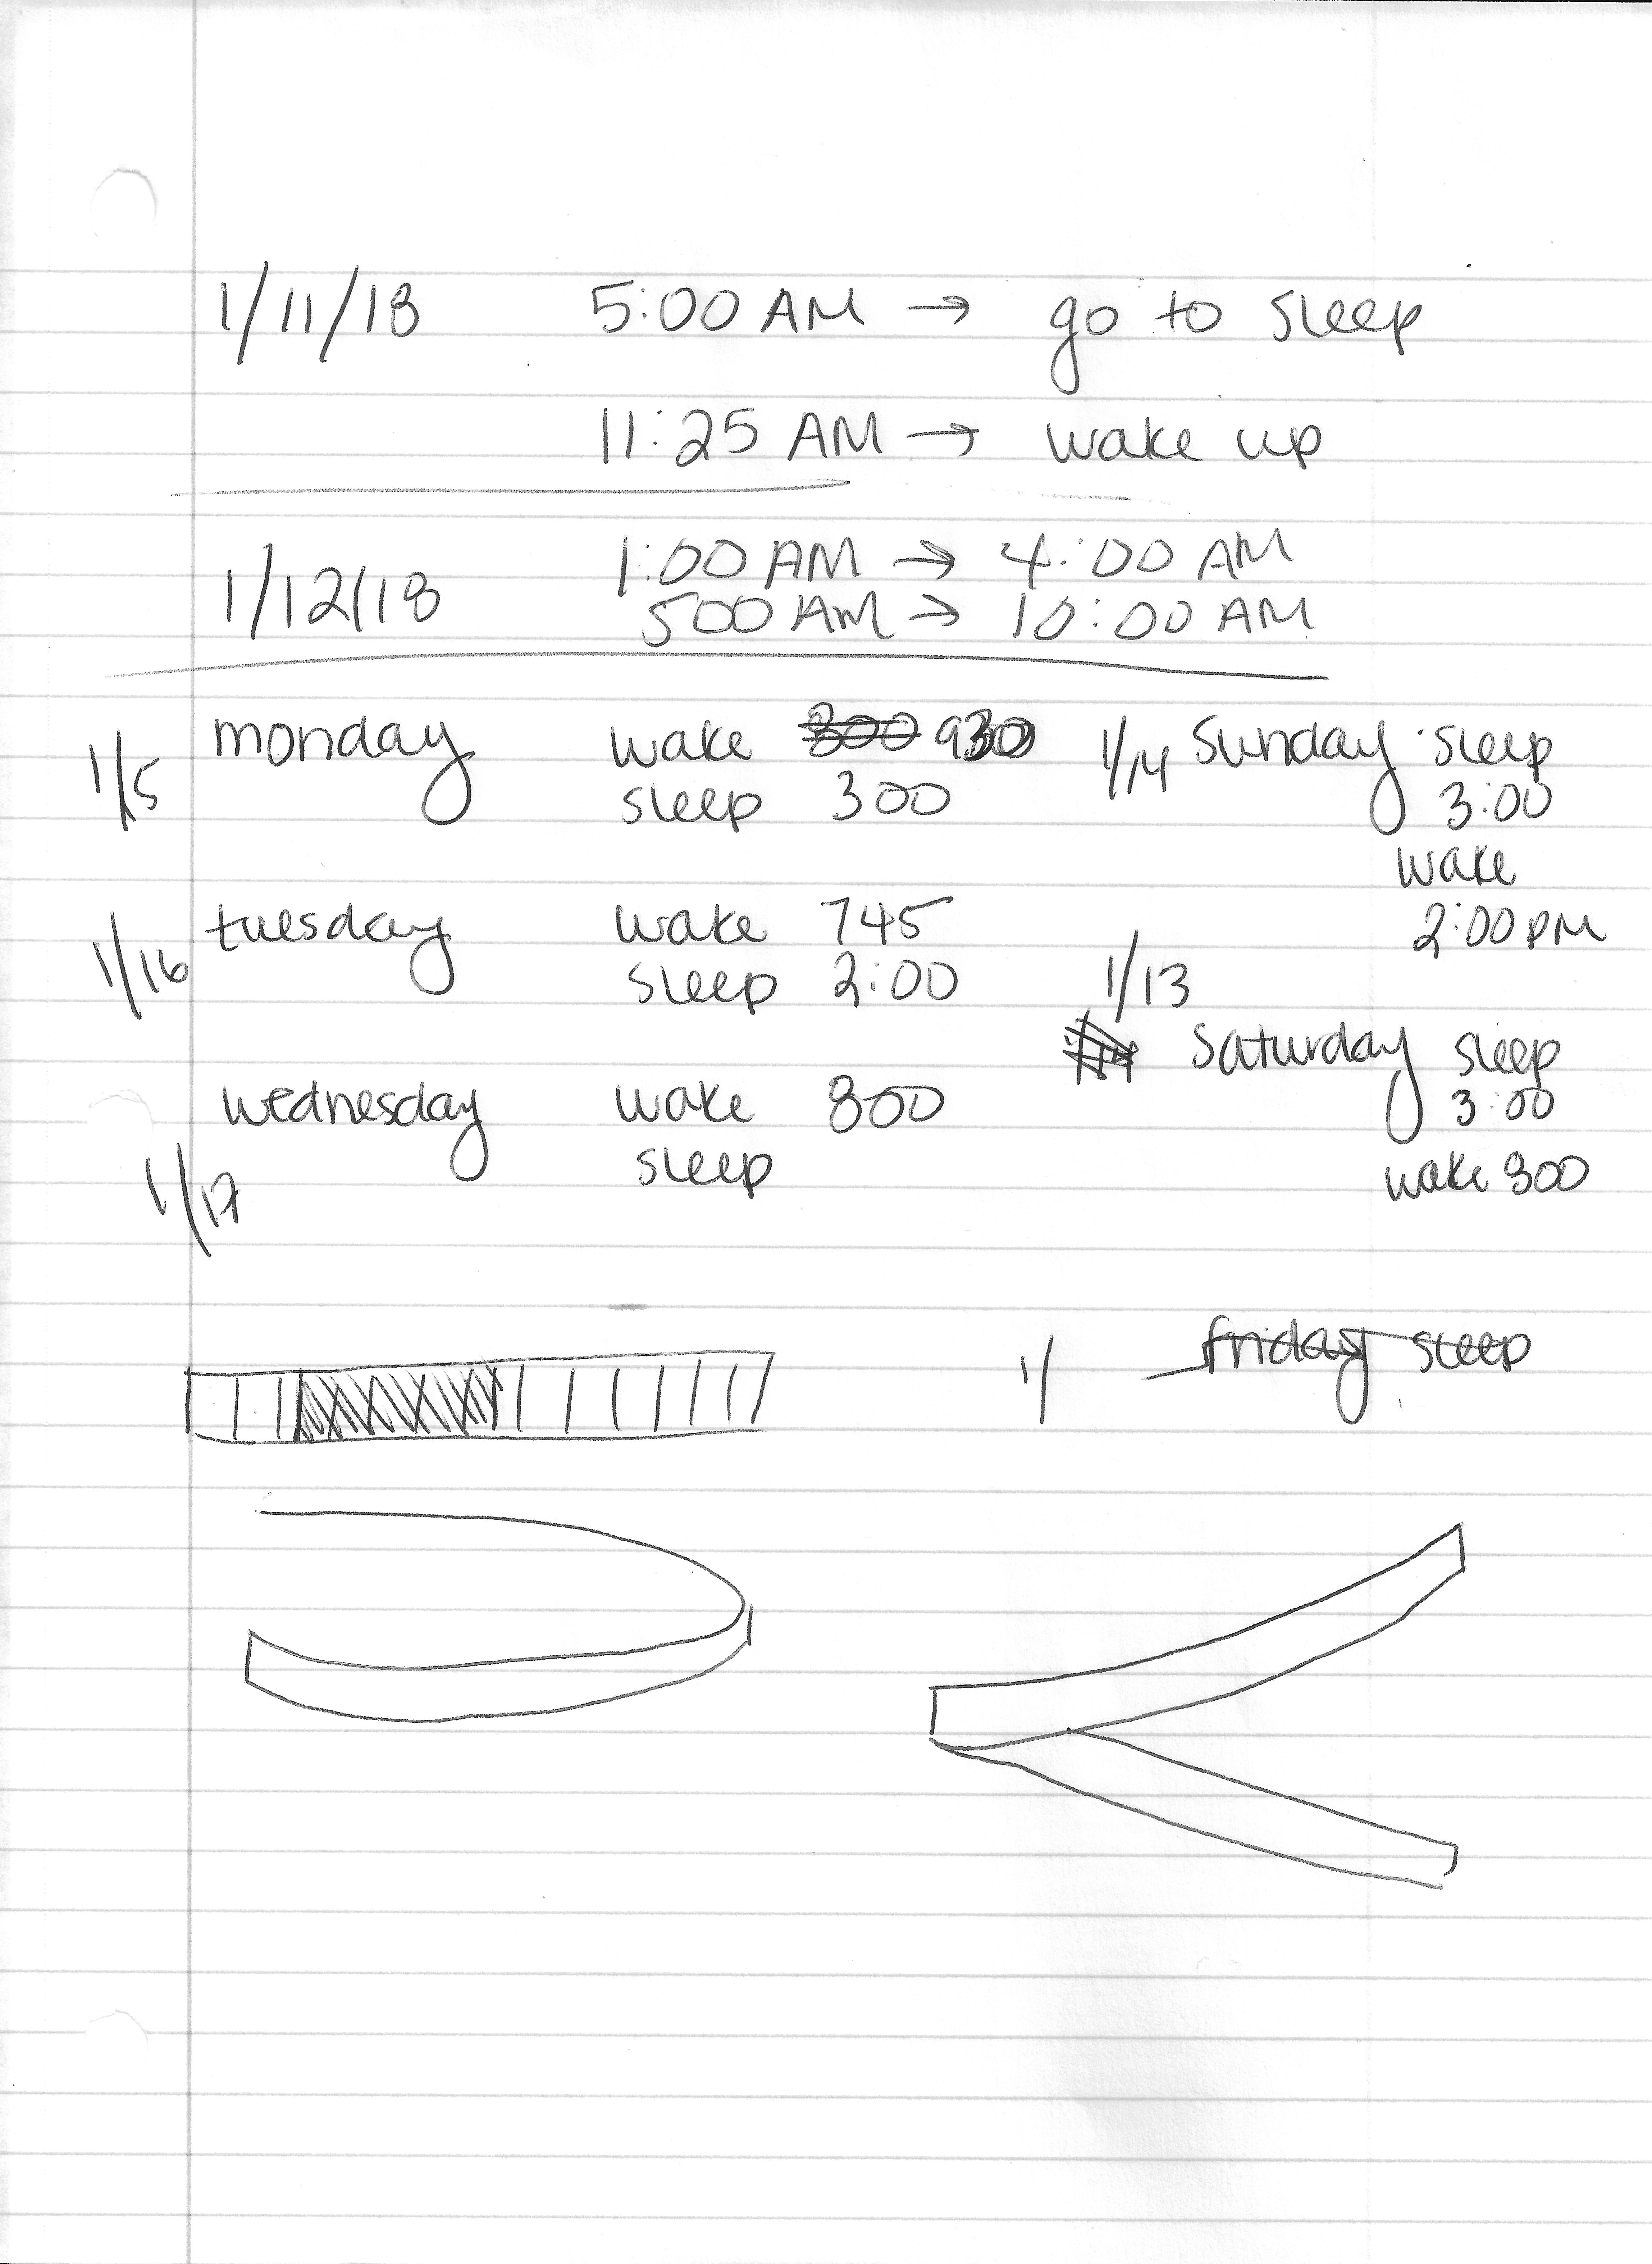 1/11/18 5:00 AM → go to sleep
11:25 AM → wake up
1/12/18 1:00 AM → 4:00 AM
500 AM → 10:00 AM
1/5 monday wake 300 930
sleep 300
1/16 tuesday wake 745
sleep 2:00
1/17 wednesday wake 800
sleep
1/14 Sunday sleep
3:00
wake
2:00 PM
1/13
Saturday sleep
3:00
wake
1/ friday sleep